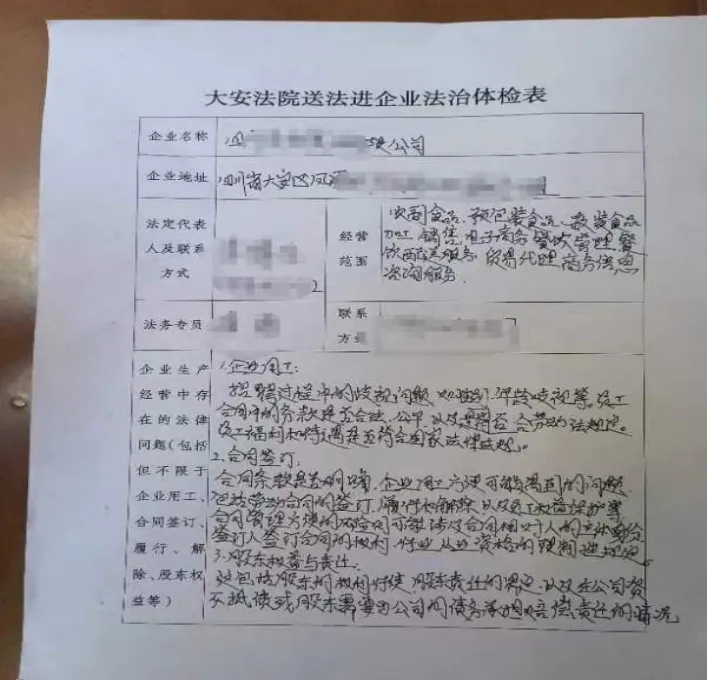 大安法院送法进企业法治体检表
企业名称
公司
企业地址
四川省大安区凤凰
法定代表
人及联系
方式
经营
范围
农副食品、预包装食品、散装食品
加工 销售, 电子商务 餐饮管理 餐
饮配送服务 贸易代理 商务信息
咨询服务.
法务专员
联系
方式
企业生产
经营中存
在的法律
问题(包括
但不限于
企业用工、
合同签订、
履行、解
除、股东权
益等)
1.企业用工:
招聘过程中的歧视问题 如性别、年龄歧视等。员工
合同中的条款是否合法、公平 以及是否符合劳动法规定。
员工福利和待遇是否符合国家法律法规。
2.合同签订:
合同条款是否明确, 企业用工方便可能遇到的问题
包括劳动合同的签订、履行和解除 以及员工权益保护等
合同管理方便的不合同可能涉及合同相对人的主体身份
签订人签订合同的权利 行业从业资格的预判 违规定
3.股东权益与责任.
这包括股东的权利行使 股东责任的界定 以及在公司资
不抵债或股东需要为公司的债务承担赔偿责任的情况